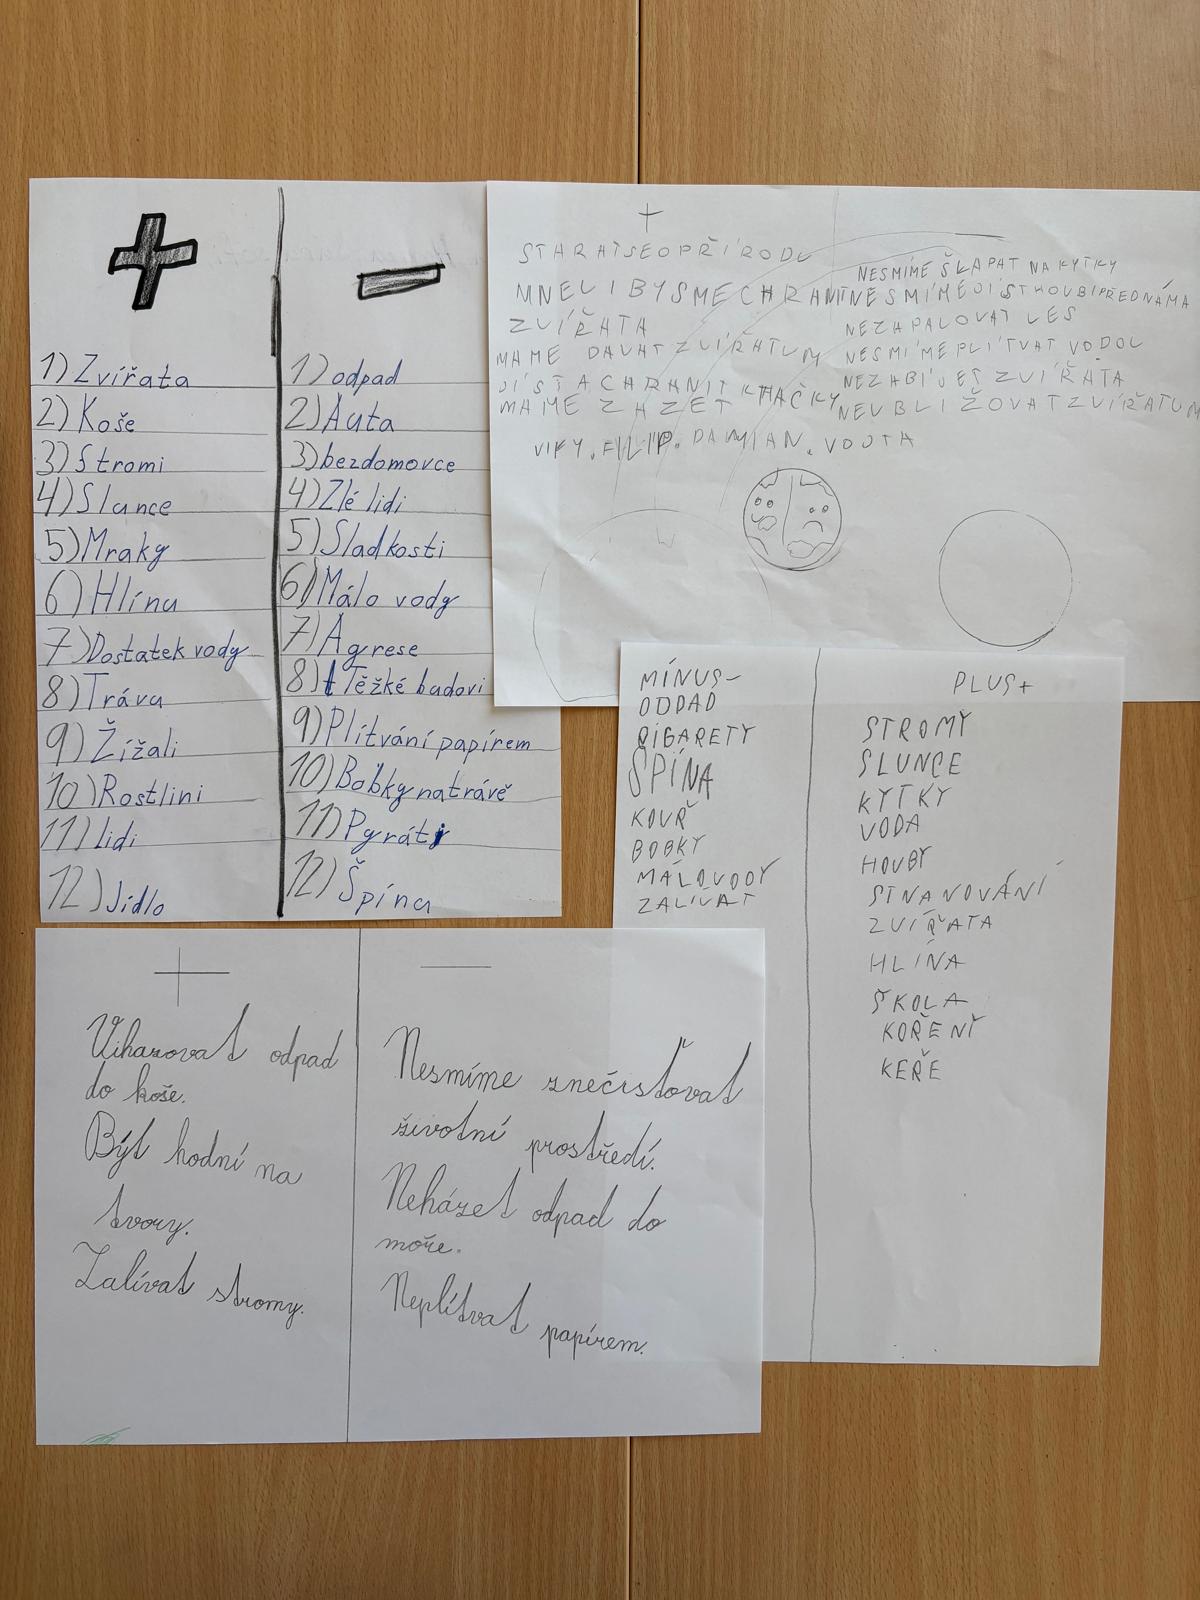 +
1) Zvířata
2) Koše
3) Stromi
4) Slunce
5) Mraky
6) Hlína
7) Dostatek vody
8) Tráva
9) Žížali
10) Rostlini
11) lidi
12) Jídlo
–
1) odpad
2) Auta
3) bezdomovce
4) Zlé lidi
5) Sladkosti
6) Málo vody
7) Agrese
8) Těžké budovi
9) Plítvání papírem
10) Bobky na trávě
11) Pyráti
12) Špína
+
STARATSEOPŘÍRODU
MNELIBYSMECHRANIT
ZVÍŘATA
MAME DAVAT ZVÍŘATUM
JÍST A CHRANIT
MAME ZAZET
NESMÍME ŠLAPAT NA KYTKY
NESMÍMEJÍSTHOUBIPŘEDNÁMA
NEZAPALOVAT LES
NESMÍMEPLÍTVAT VODOU
NEZABIJET ZVÍŘATA
NEUBLIŽOVATZVÍŘATUM
VIKY. FILIP. DAMIAN. VOJTA
MÍNUS-
ODPAD
CIGARETY
ŠPÍNA
KOUŘ
BOBKY
MÁLOVODY
ZALÍVAT
PLUS+
STROMY
SLUNCE
KYTKY
VODA
HOUBY
STNANOVÁNÍ
ZVÍŘATA
HLÍNA
ŠKOLA
KOŘENY
KEŘE
+
Vihazovat odpad
do koše.
Být hodní na
tvory.
Zalívat stromy.
–
Nesmíme znečisťovat
životní prostředí.
Neházet odpad do
moře.
Neplítvat papírem.